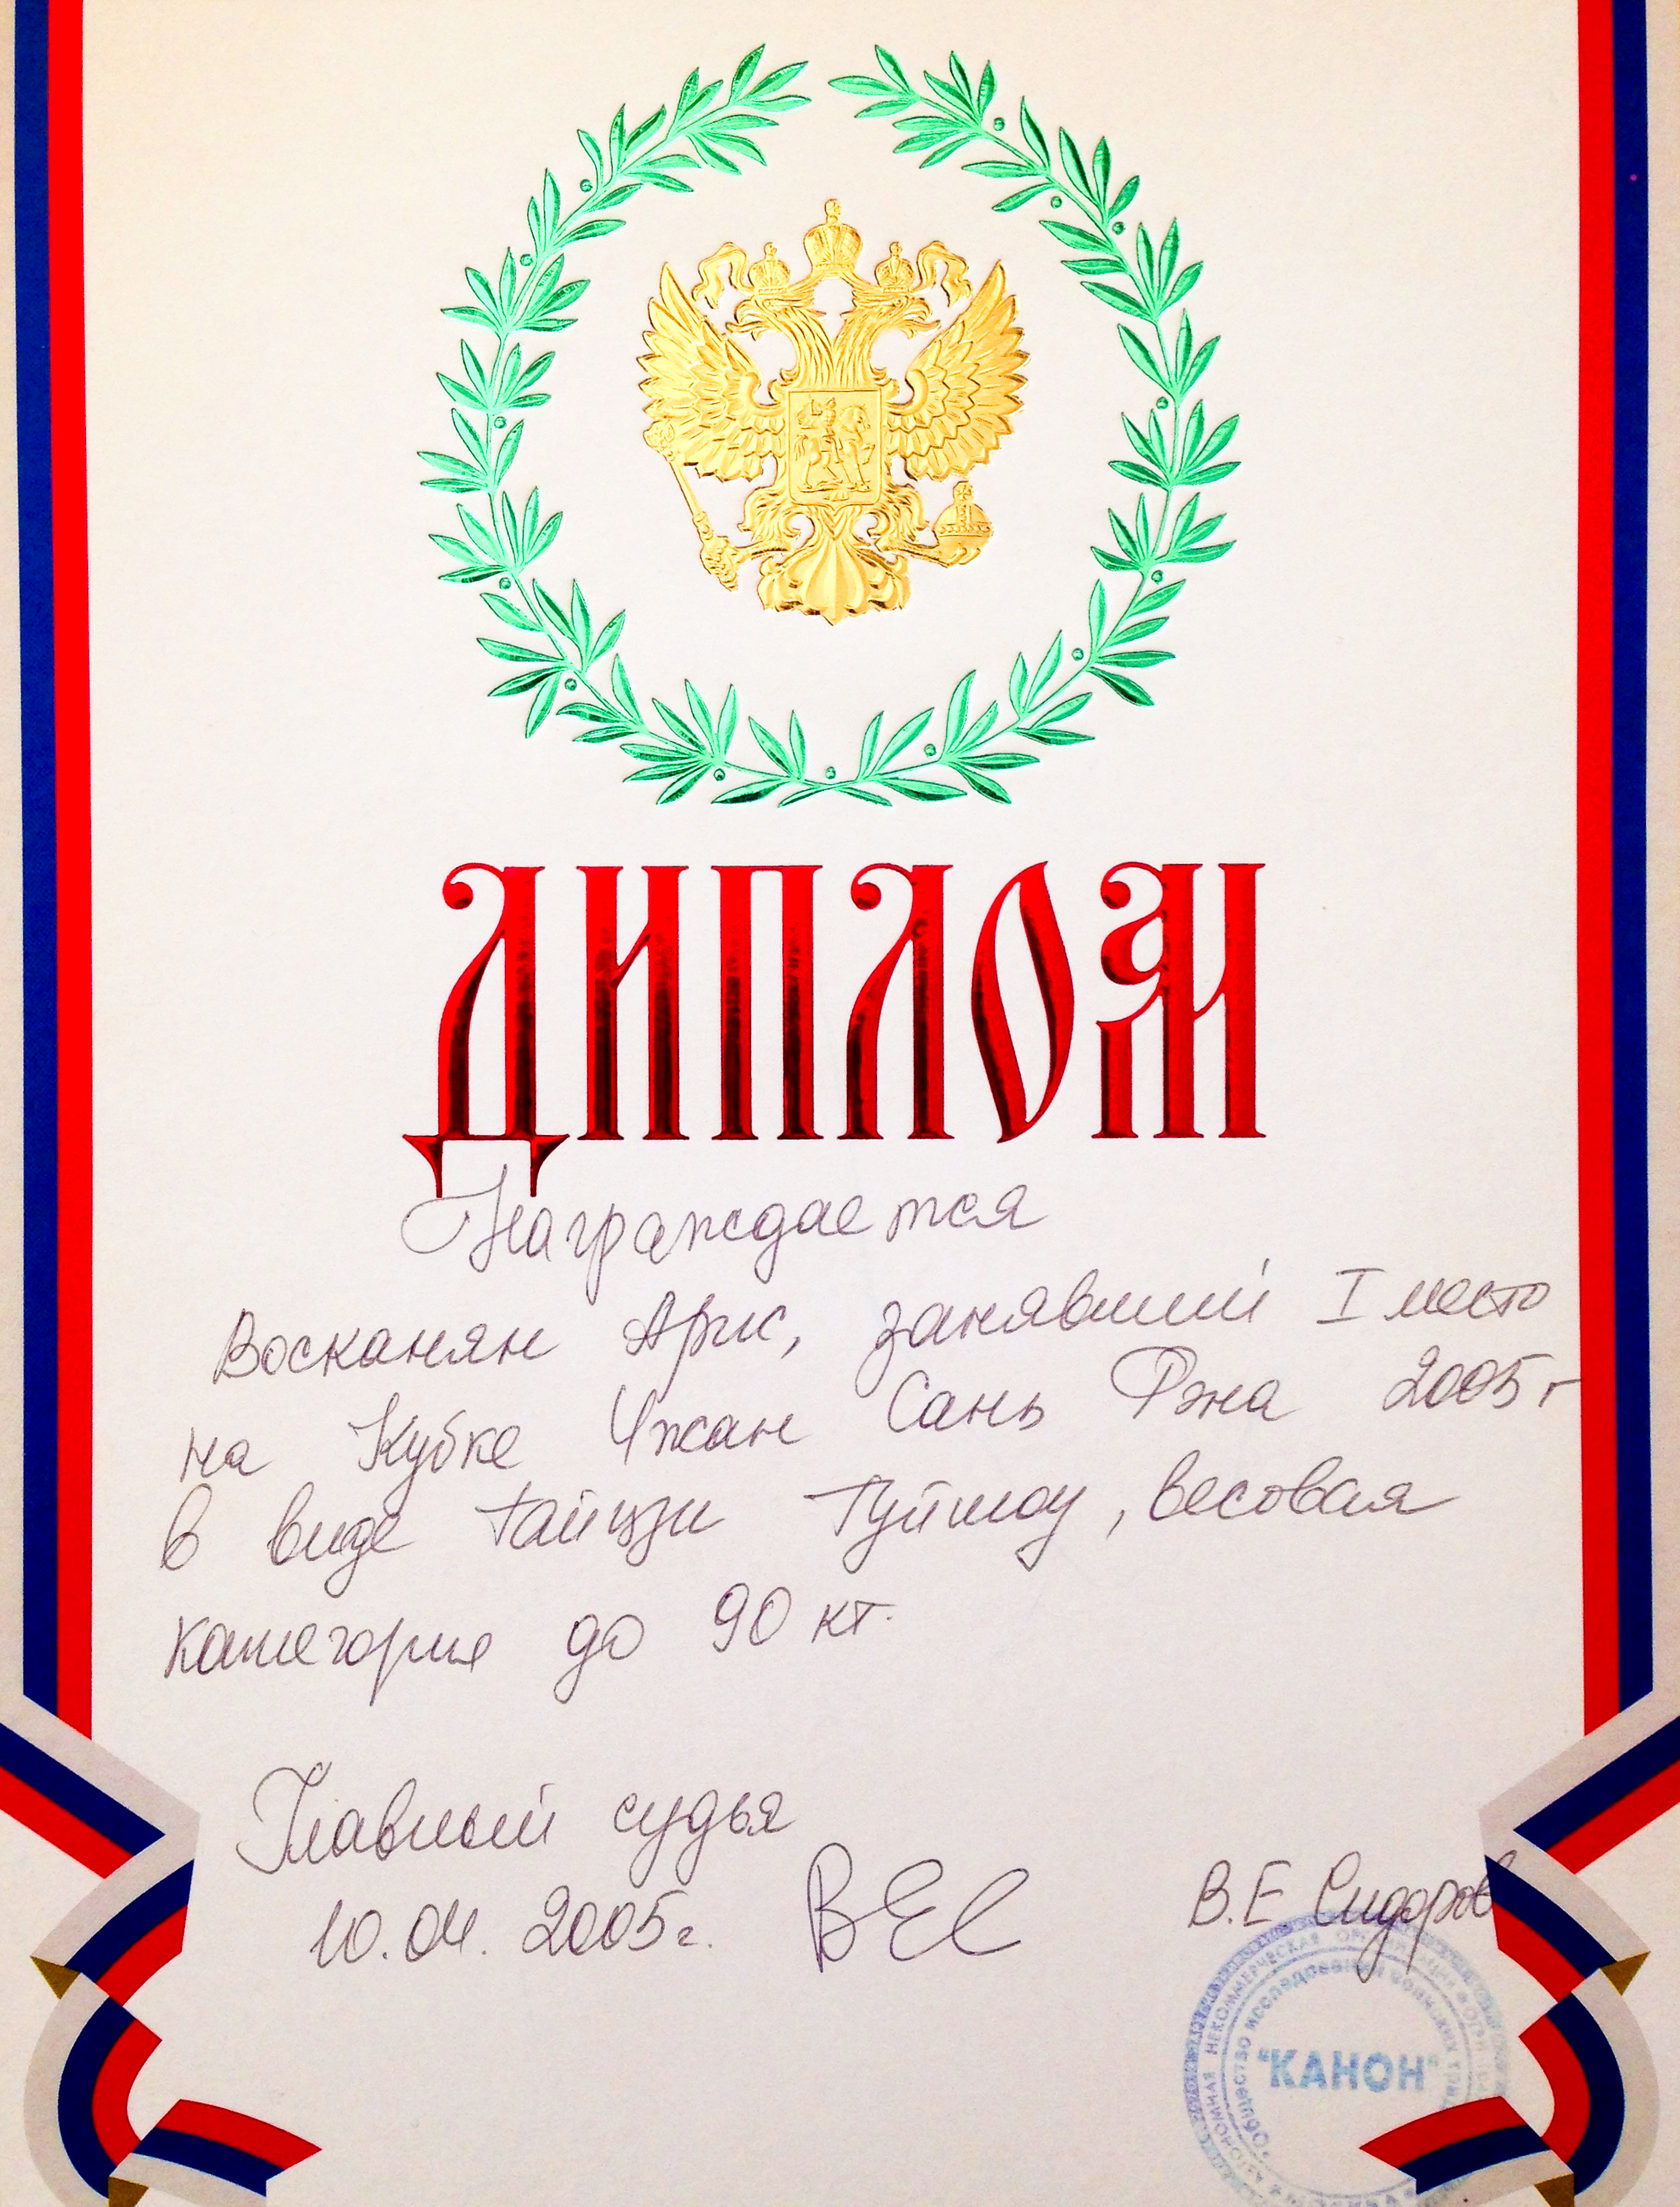 ДИПЛОМ
Награждается
Восканян Арис, занявший I место
на Кубке Чжан Сань Фэна 2005 г
в виде тайцзи Туйшоу, весовая
категория до 90 кг.
Главный судья
10.04. 2005г. ВЕС В.Е Сидоров
АВТОНОМНАЯ НЕКОММЕРЧЕСКАЯ ОРГАНИЗАЦИЯ
"Общество исследования воинских
"КАНОН"